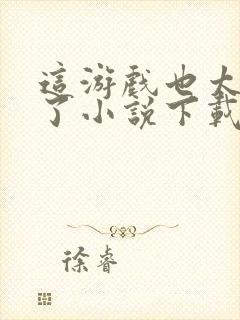 這游戲也太
了小說下載
徐睿